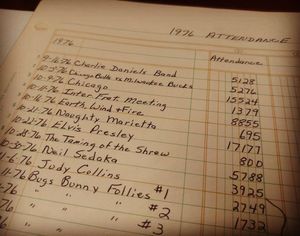 1976 ATTENDANCE
1976 Attendance
9-16-76 Charlie Daniels Band 5128
Chicago Bulls vs Milwaukee Bucks 5276
10-9-76 Chicago 15524
Inter Frat. Meeting 1379
10-16-76 Earth, Wind & Fire 8855
10-21-76 Naughty Marietta 695
10-22-76 Elvis Presley 17177
10-28-76 The Taming of the Shrew 800
10-30-76 Neil Sedaka 5788
1-6-76 Judy Collins 3925
-76 Bugs Bunny Follies #1 2749
-76 " " " #2 1732
76 " " " #3